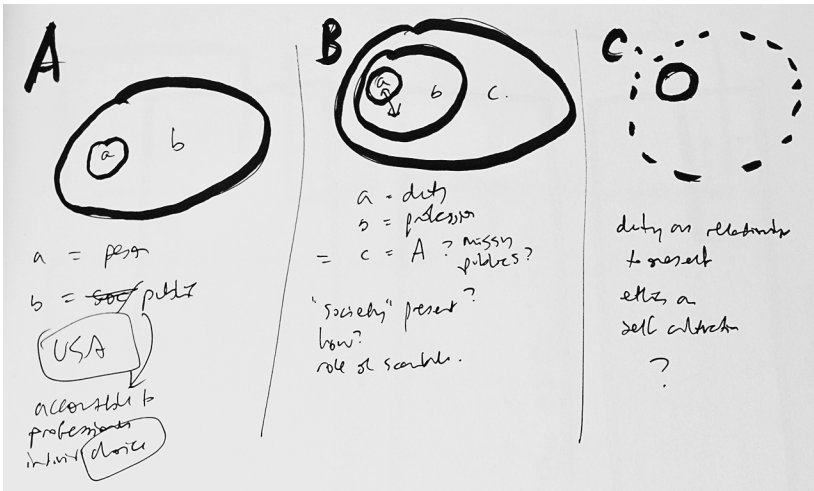 A
a
b
a = person
b = soc public
USA
accountable to
professions
individ choice
B
a
b
c.
a = duty
b = profession
= c = A ? missing
publics?
"society" present?
how?
role of
C
duty as relationship
to
ethics as
self cultivation
?